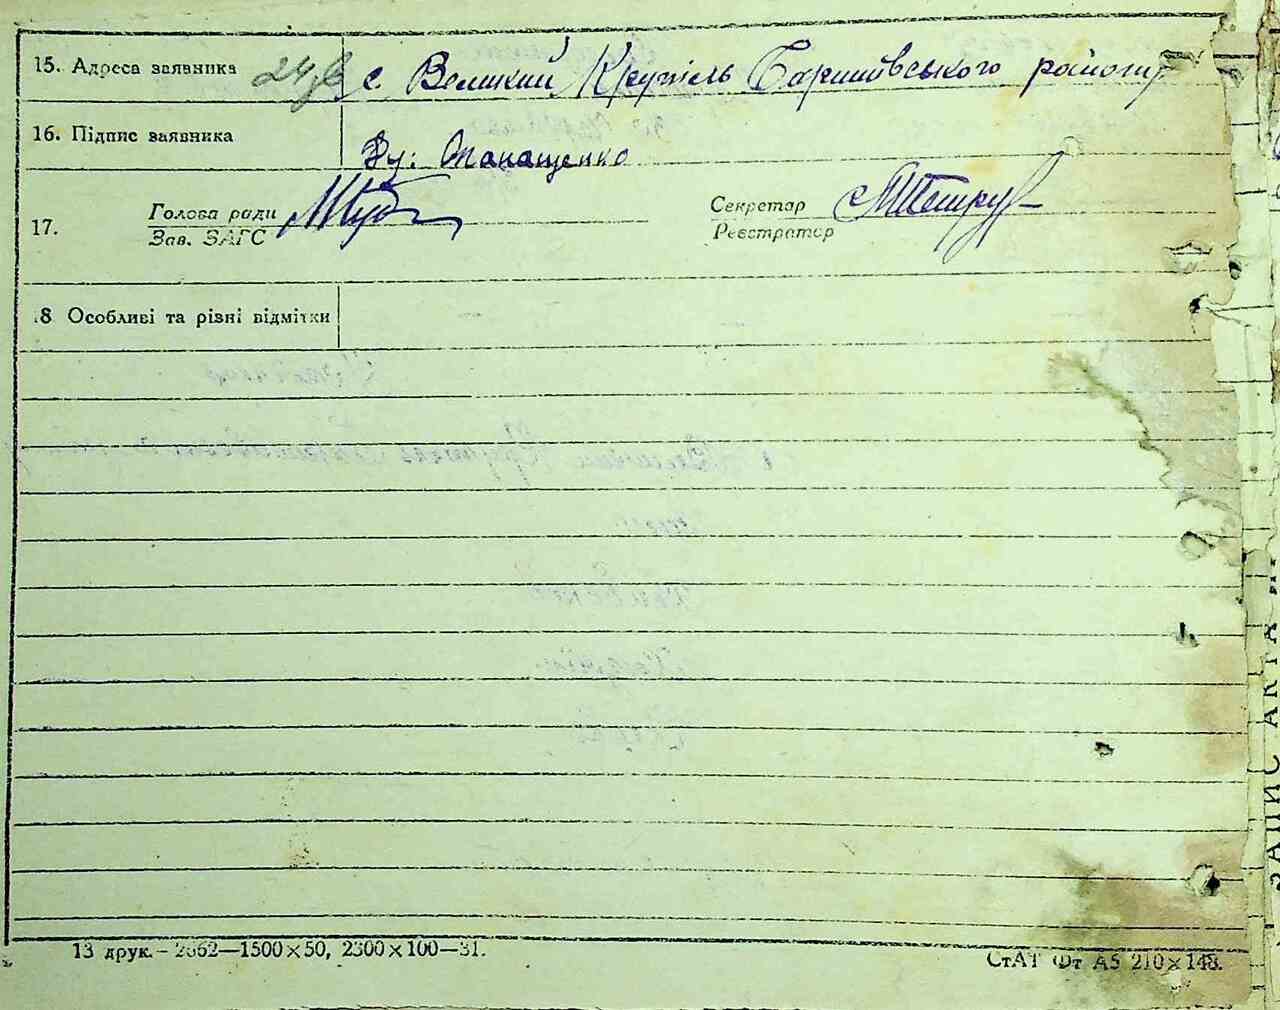 15. Адреса заявника с. Великий Крупіль Баришівського району
16. Підпис заявника Танащенко
17. Голова ради Секретар
Зав. ЗАГС Реєстратор
.8 Особливі та різні відмітки
13 друк.- 2662—1500×50, 2300×100—31.
СтАТ Фт А5 210×148.
ЗАПИС АКТА